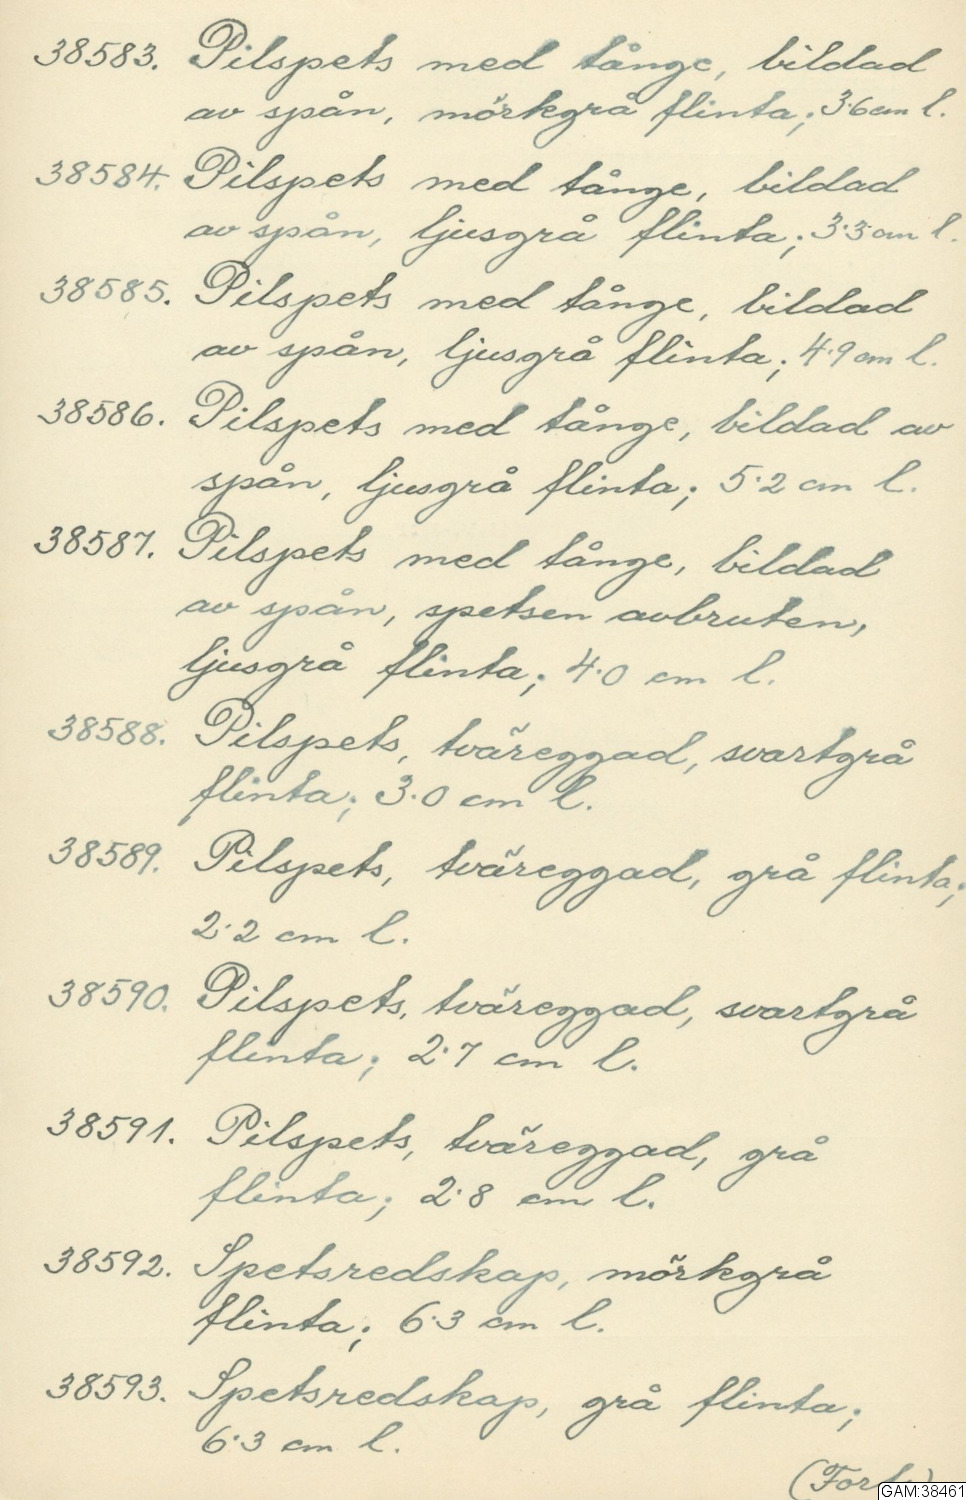 38583. Pilspets med tånge, bildad
av spån, mörkgrå flinta; 3·6 cm l.
38584. Pilspets med tånge, bildad
av spån, ljusgrå flinta; 3·3 cm l.
38585. Pilspets med tånge, bildad
av spån, ljusgrå flinta; 4·9 cm l.
38586. Pilspets med tånge, bildad av
spån, ljusgrå flinta; 5·2 cm l.
38587. Pilspets med tånge, bildad
av spån, spetsen avbruten,
ljusgrå flinta; 4·0 cm l.
38588. Pilspets, tväreggad, svartgrå
flinta; 3·0 cm l.
38589. Pilspets, tväreggad, grå flinta;
2·2 cm l.
38590. Pilspets, tväreggad, svartgrå
flinta; 2·7 cm l.
38591. Pilspets, tväreggad, grå
flinta; 2·8 cm l.
38592. Spetsredskap, mörkgrå
flinta; 6·3 cm l.
38593. Spetsredskap, grå flinta;
6·3 cm l.
GAM:38461